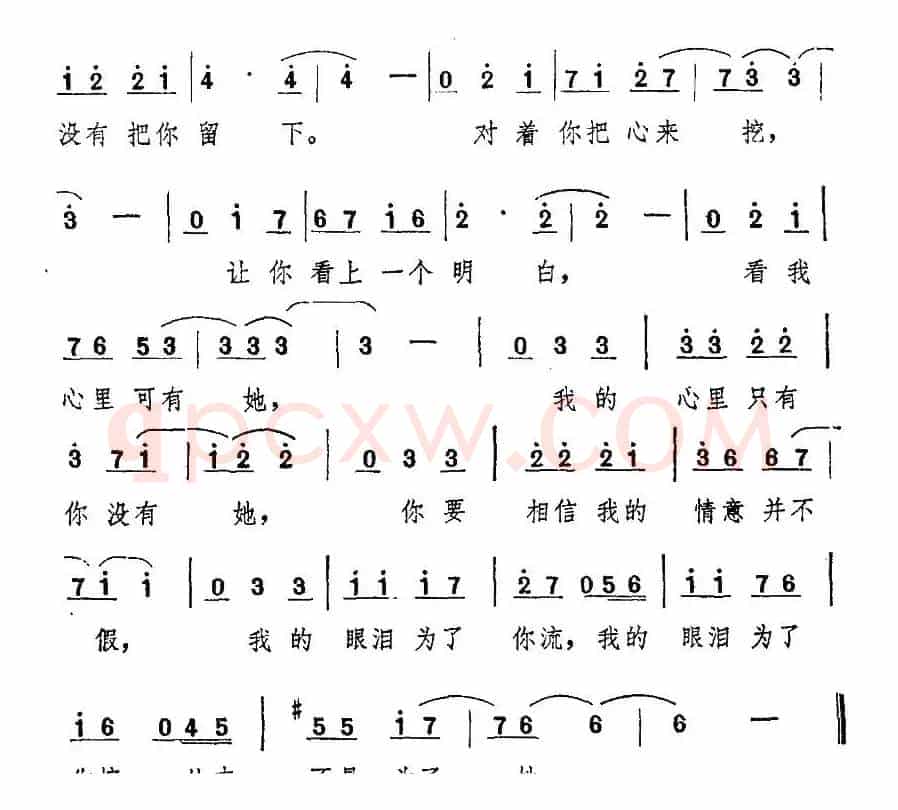 1 2 2 1 | 4 · 4 | 4 — | 0 2 1 | 7 1 2 7 | 7 3 3 |
没有 把你 留 下。 对着 你把 心来 挖，
3 — | 0 1 7 | 6 7 1 6 | 2 · 2 | 2 — | 0 2 1 |
让你 看上 一个 明 白， 看我
7 6 5 3 | 3 3 3 | 3 — | 0 3 3 | 3 3 2 2 |
心里 可有 她， 我的 心里 只有
qpcxw.COM
3 7 1 | 1 2 2 | 0 3 3 | 2 2 2 1 | 3 6 6 7 |
你 没有 她， 你要 相信 我的 情意 并不
7 1 1 | 0 3 3 | 1 1 1 7 | 2 7 0 5 6 | 1 1 7 6 |
假， 我的 眼泪 为了 你流，我的 眼泪 为了
1 6 0 4 5 | #5 5 1 7 | 7 6 6 | 6 — ‖